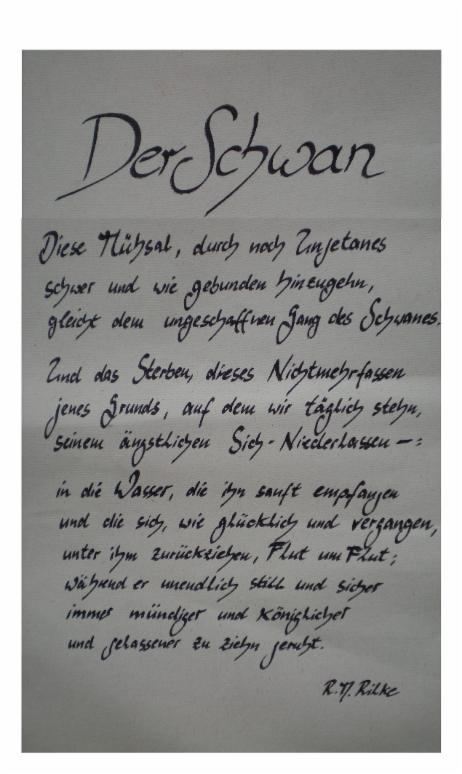 Der Schwan
Diese Mühsal, durch noch Ungetanes
schwer und wie gebunden hinzugehn,
gleicht dem ungeschaffnen Gang des Schwanes.
Und das Sterben, dieses Nichtmehrfassen
jenes Grunds, auf dem wir täglich stehn,
seinem ängstlichen Sich-Niederlassen –:
in die Wasser, die ihn sanft empfangen
und die sich, wie glücklich und vergangen,
unter ihm zurückziehen, Flut um Flut;
während er unendlich still und sicher
immer mündiger und königlicher
und gelassener zu ziehn geruht.
R.M. Rilke